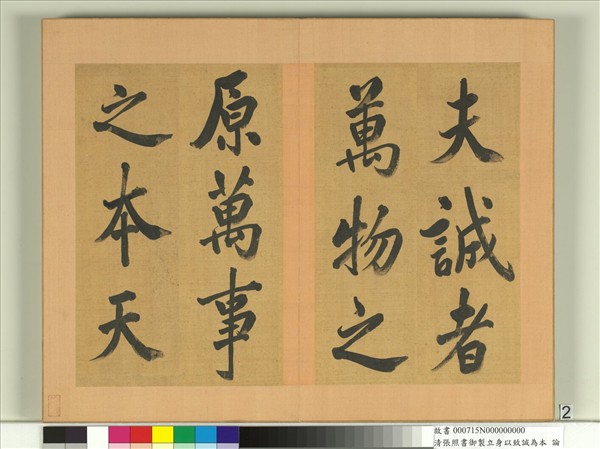 夫誠者
萬物之
原萬事
之本天
2
故書 000715N000000000
清張照書御製立身以致誠為本 論